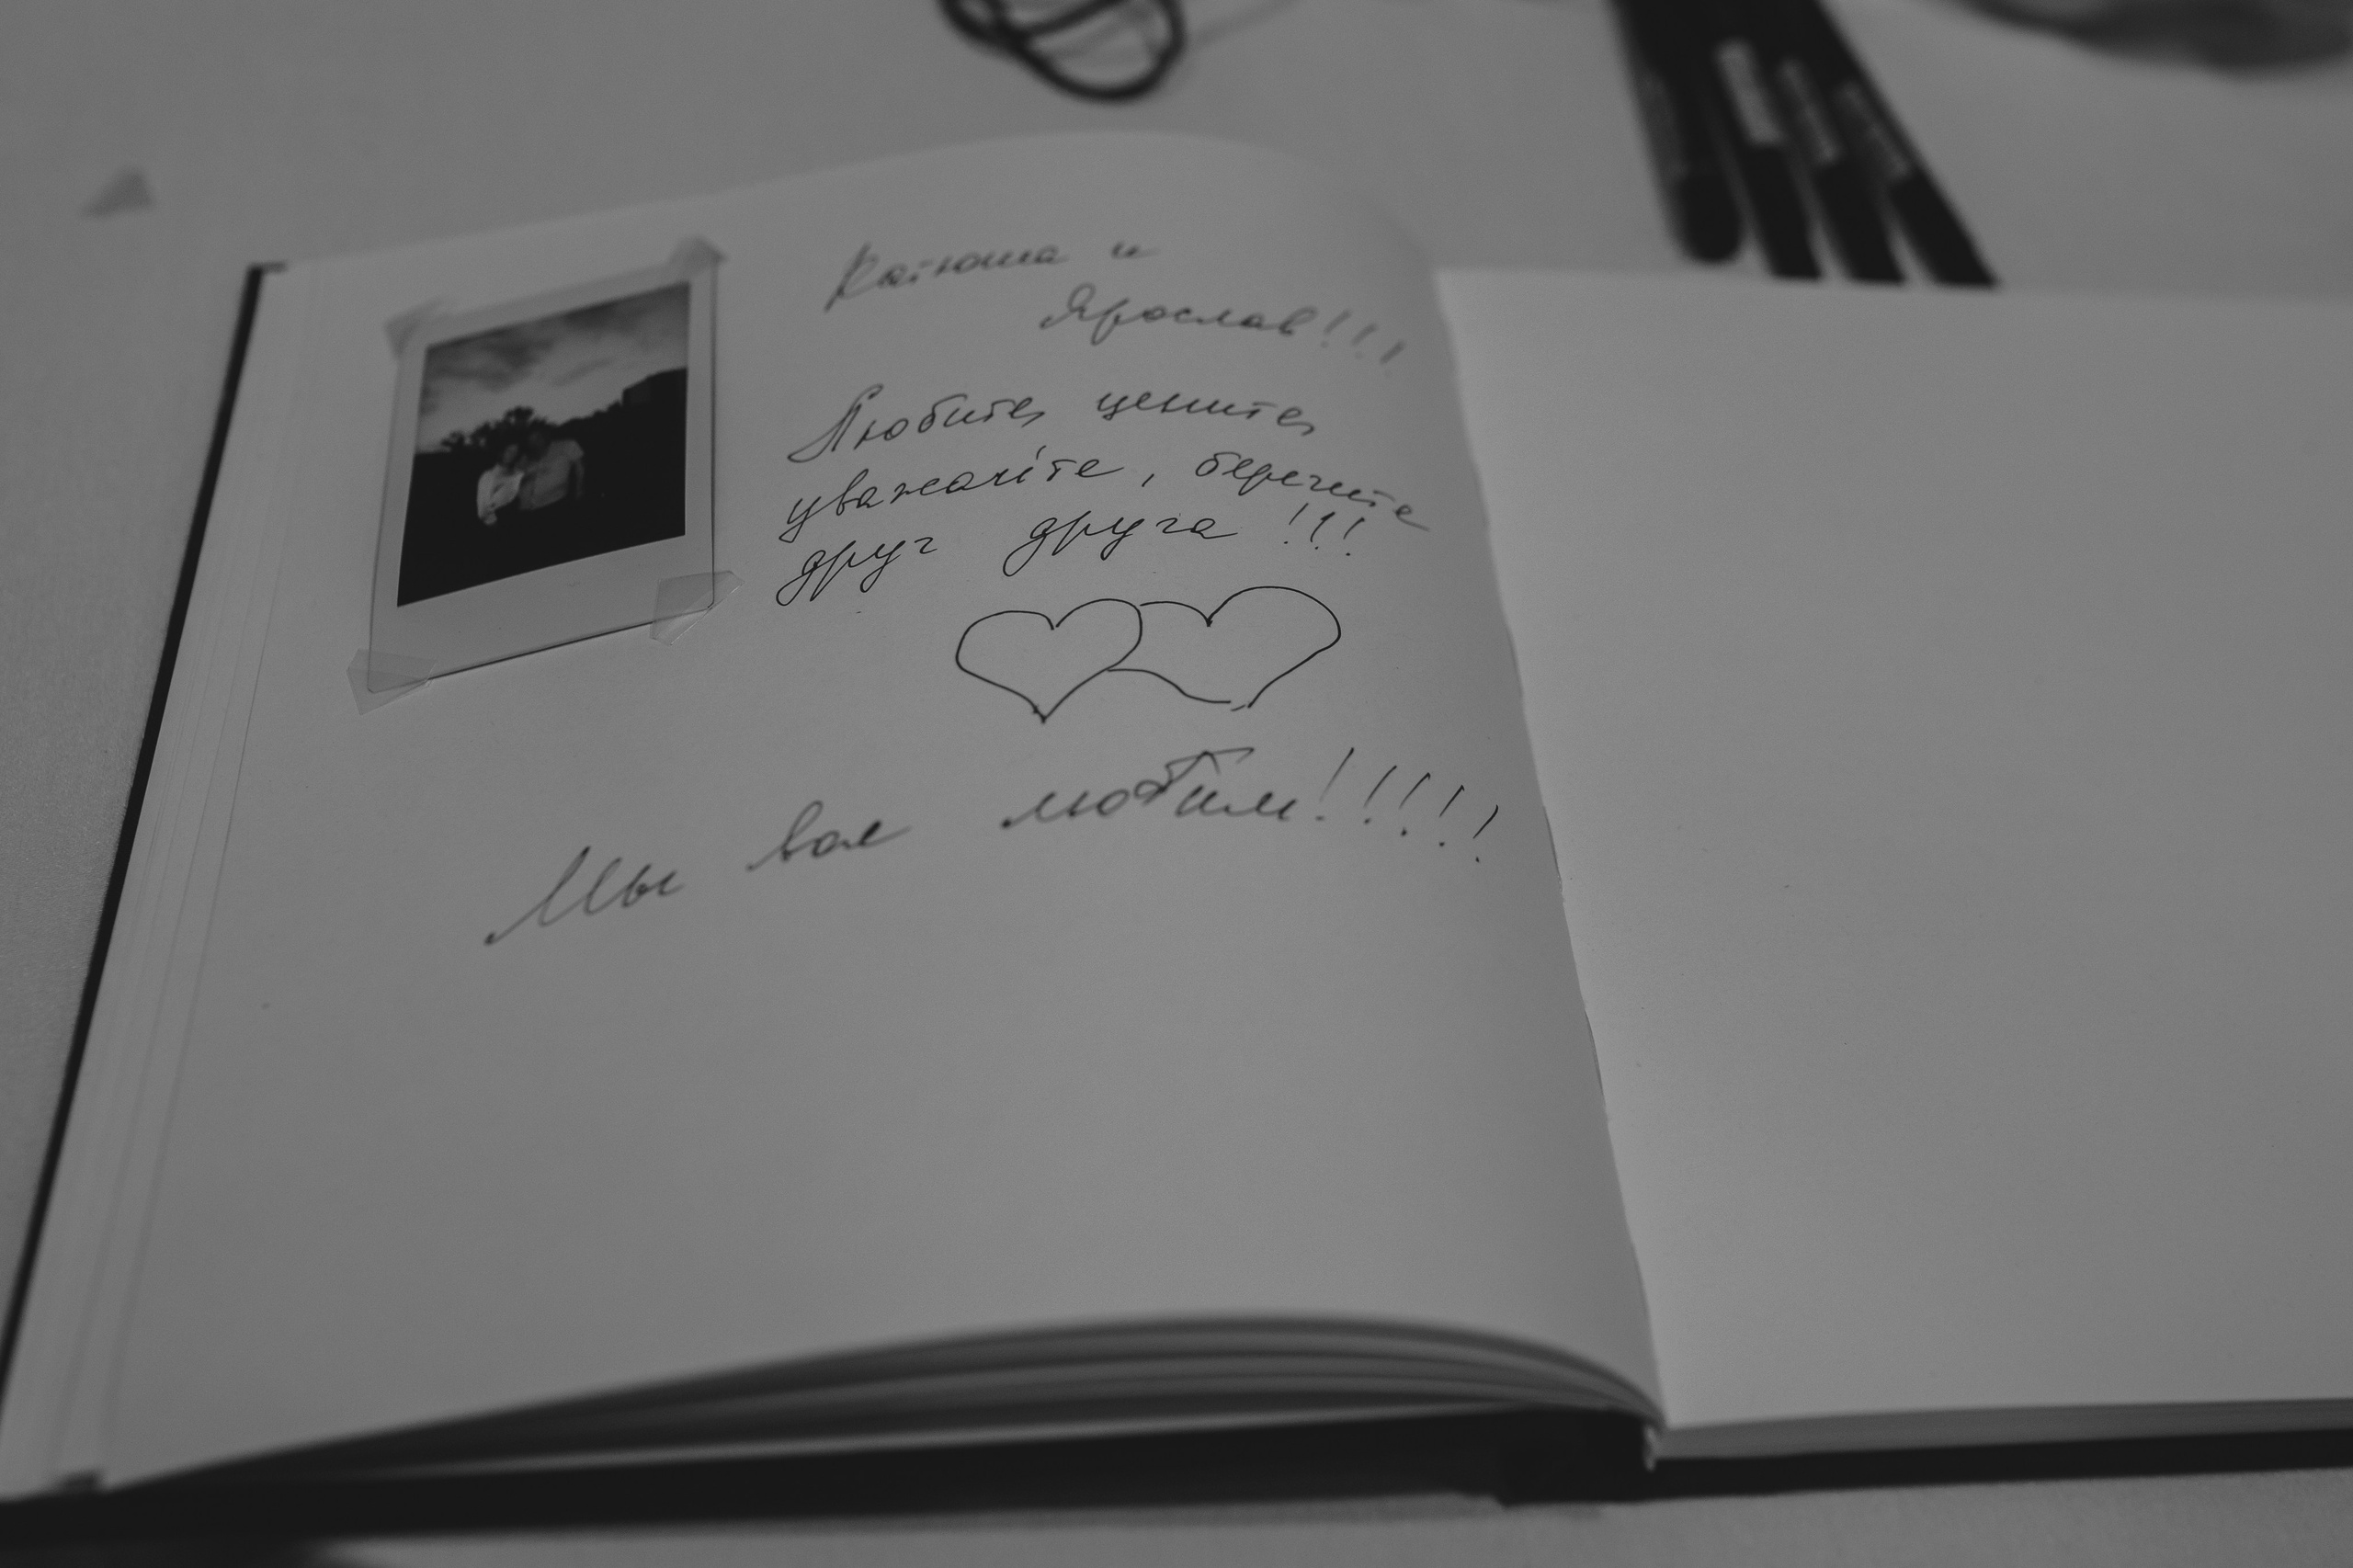 Катюша и
Ярослав!!!
Любите, цените,
уважайте, берегите
друг друга!!!
Мы вас любим!!!!!